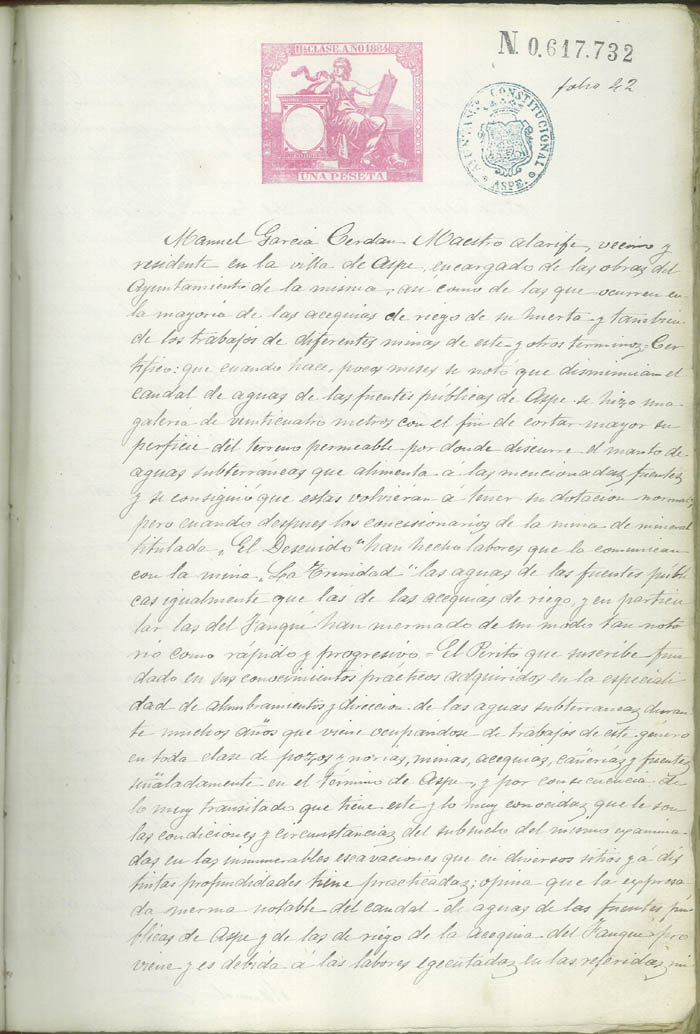 11ª CLASE AÑO 1884
N 0.617.732
folio 22
AYUNTAMº CONSTITUCIONAL
ASPE.
UNA PESETA
Manuel Garcia Cerdan Maestro alarife, vecino y
residente en la villa de Aspe, encargado de las obras del
Ayuntamiento de la misma, asi como de las que ocurren en
la mayoria de las acequias de riego de su huerta y tambien
de los trabajos de diferentes minas de este y otros terminos, Cer
tifico: que cuando hace pocos meses se noto que disminuian el
caudal de aguas de las fuentes públicas de Aspe se hizo una
galeria de veinticuatro metros con el fin de cortar mayor su
perficie del terreno permeable por donde discurre el manto de
aguas subterráneas que alimenta á las mencionadas fuentes
y se consiguió que estas volvieran á tener su dotacion normal;
pero cuando despues los concisionarios de la mina de mineral
titulada „El Descuido" han hecho labores que la comunican
con la mina „La Trinidad" las aguas de las fuentes públi
cas igualmente que las de las acequias de riego, y en particu
lar las del Fanqui han mermado de un modo tan noto
rio como rapido y progresivo = El Perito que suscribe fun
dado en sus conocimientos prácticos adquiridos en la especiali
dad de alumbramientos y direccion de las aguas subterraneas duran
te muchos años que viene ocupándose de trabajos de este género
en toda clase de pozos y norias, minas, acequias, cañerias y fuentes
señaladamente en el término de Aspe, y por consecuencia de
lo muy transitado que tiene este y lo muy conocidas que le son
las condiciones y circunstancias del subsuelo del mismo examina
das en las innumerables escavaciones que en diversos sitios y á dis
tintas profundidades tiene practicadas; opina que la expresa
da merma notable del caudal de aguas de las fuentes pú
blicas de Aspe y de las de riego de la acequia del Fanque pro
viene y es debida á las labores egecutadas en las referidas mi